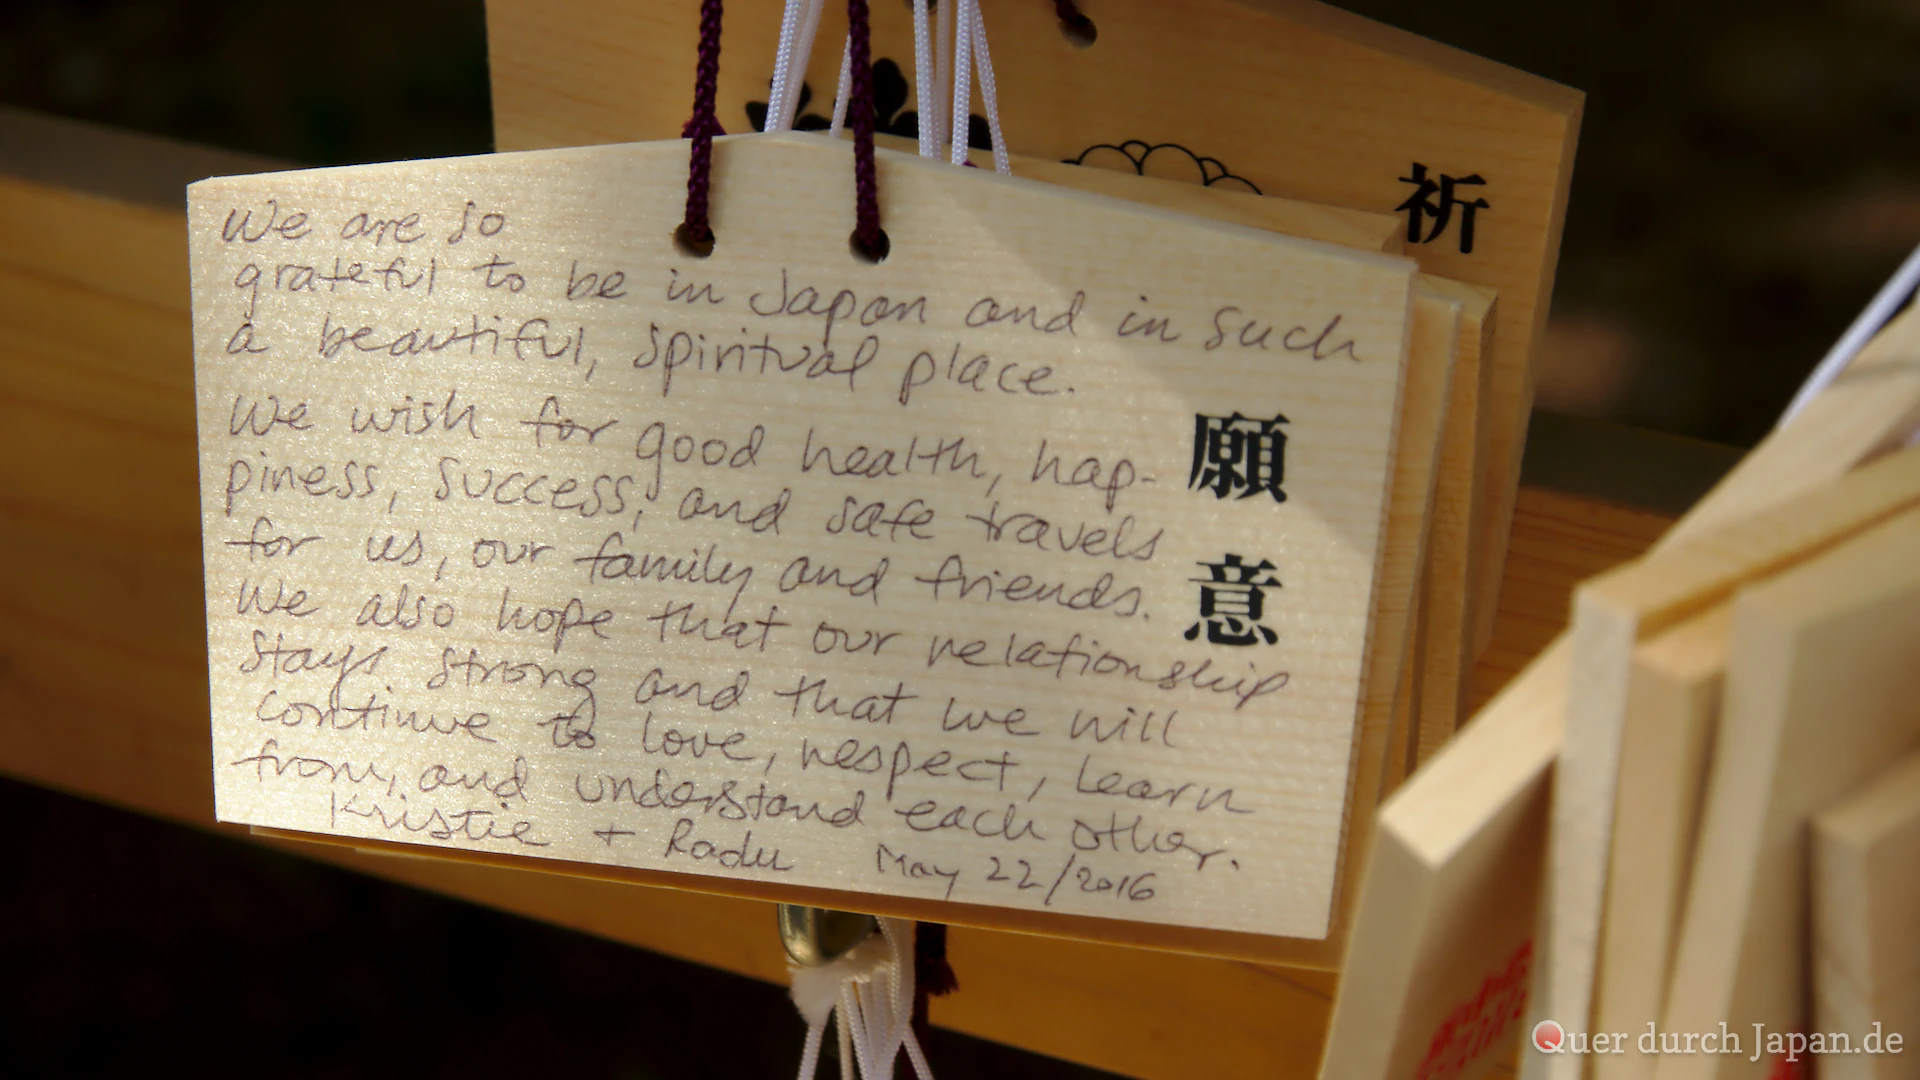 We are so
grateful to be in Japan and in such
a beautiful, spiritual place.
We wish for good health, hap-
piness, success, and safe travels
for us, our family and friends.
We also hope that our relationship
stays strong and that we will
continue to love, respect, learn
from, and understand each other.
Kristie + Radu May 22/2016
願
意
祈
Quer durch Japan.de